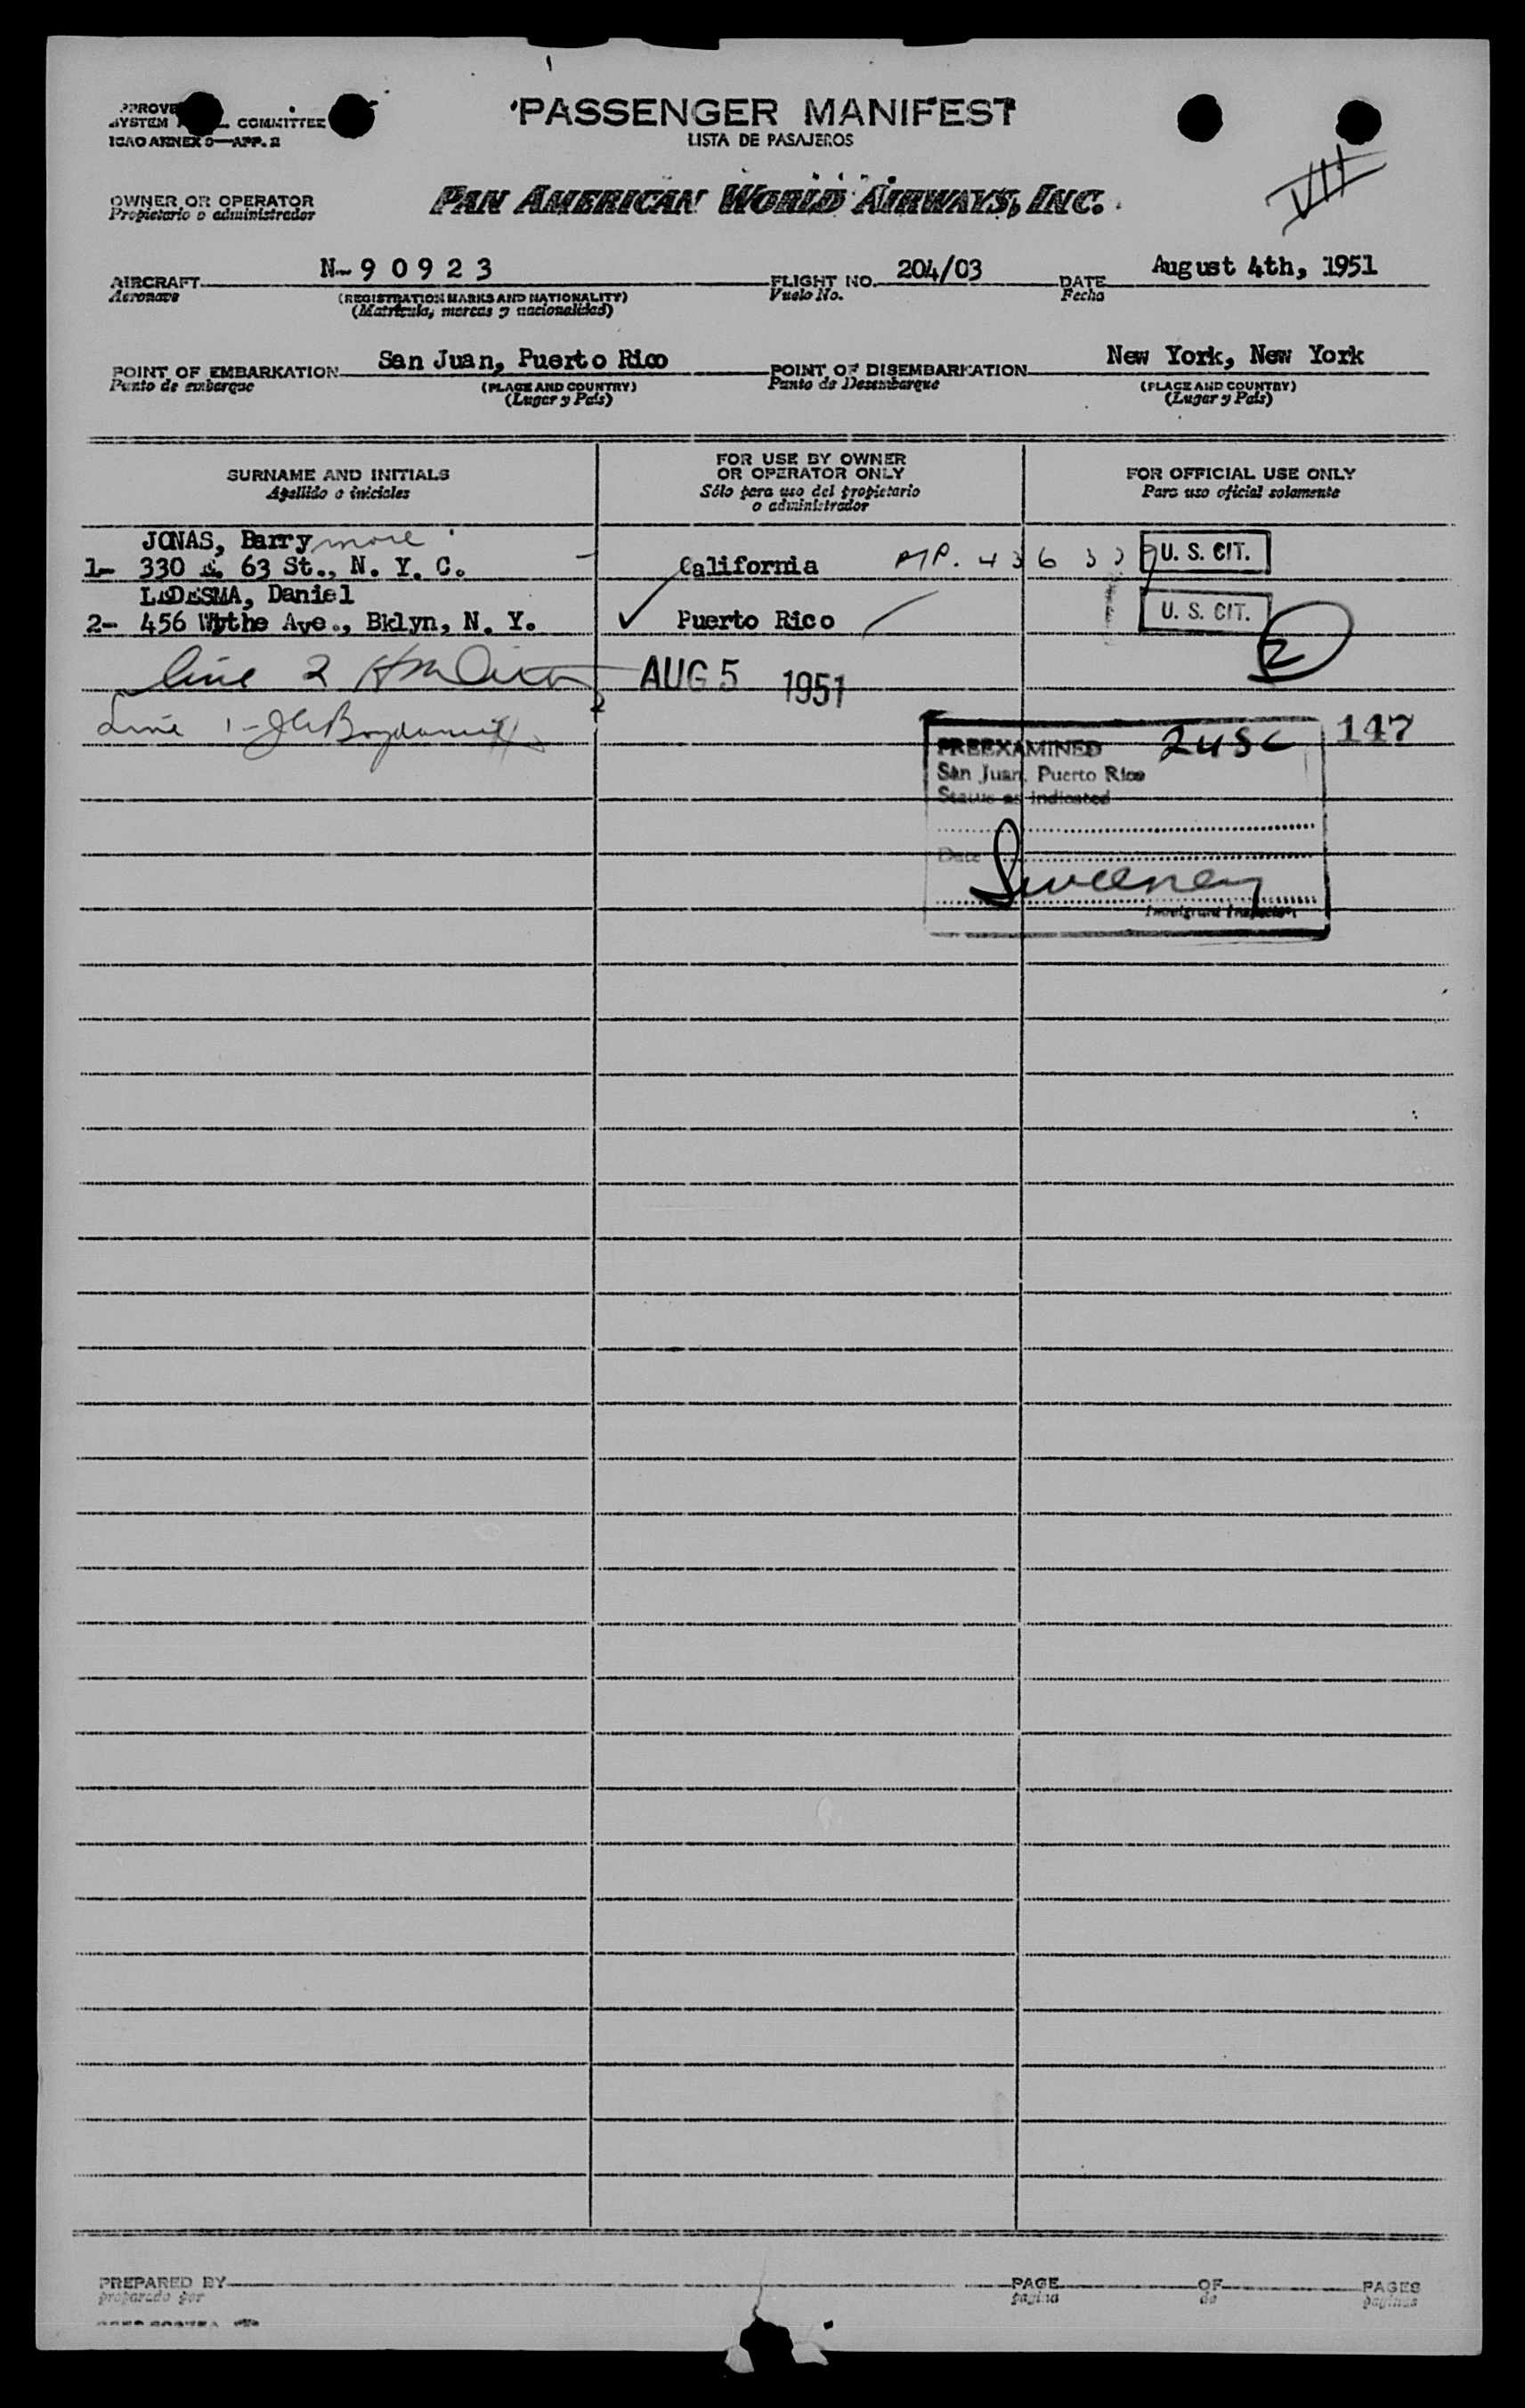 PASSENGER MANIFEST
LISTA DE PASAJEROS
COMMITTEE
ICAO ANNEX 9—APP. 2
VII
OWNER OR OPERATOR
Propietario o administrador
PAN AMERICAN WORLD AIRWAYS, INC.
AIRCRAFT N-90923 FLIGHT NO. 204/03 DATE August 4th, 1951
Aeronave (REGISTRATION MARKS AND NATIONALITY) Vuelo No. Fecha
(Matrícula, marcas y nacionalidad)
POINT OF EMBARKATION San Juan, Puerto Rico POINT OF DISEMBARKATION New York, New York
Punto de embarque (PLACE AND COUNTRY) Punto de Desembarque (PLACE AND COUNTRY)
(Lugar y País) (Lugar y País)
SURNAME AND INITIALS
Apellido o iniciales
FOR USE BY OWNER
OR OPERATOR ONLY
Sólo para uso del propietario
o administrador
FOR OFFICIAL USE ONLY
Para uso oficial solamente
JONAS, Barrymore
1- 330 E. 63 St., N. Y. C. California U. S. CIT.
LEDESMA, Daniel
2- 456 Wythe Ave., Bklyn, N. Y. Puerto Rico U. S. CIT.
2
Line 2 AUG 5 1951
Line 1-
147
PREEXAMINED 2USC
San Juan, Puerto Rico
Status as indicated
Date
Sweeney
Immigrant Inspector
PREPARED BY PAGE OF PAGES
preparado por página de páginas